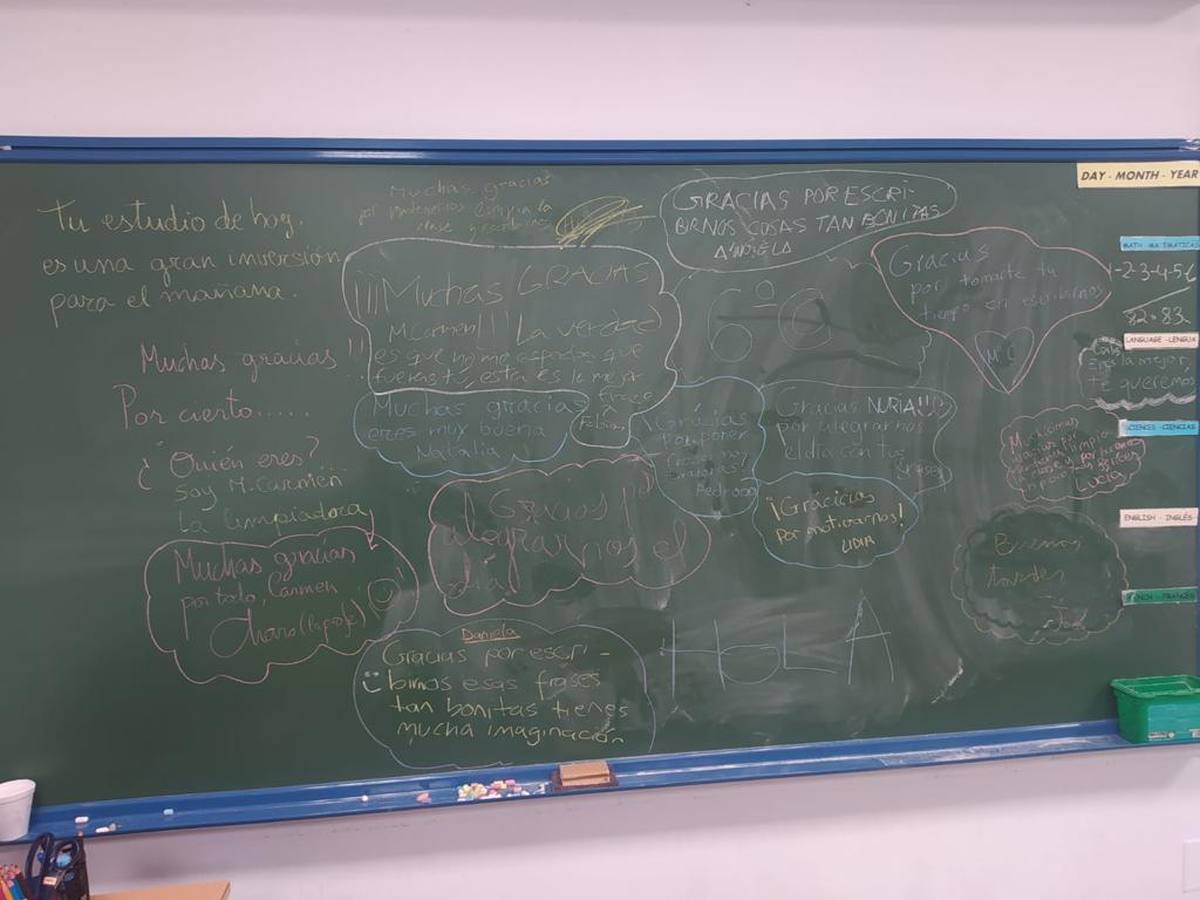 Tu estudio de hoy
es una gran inversión
para el mañana.
Muchas gracias!!
Por cierto......
¿Quién eres?
Soy M.Carmen
La limpiadora
Muchas gracias
por todo, Carmen
Charo (la profe)
Muchas gracias
clase y escribirnos
¡¡¡Muchas GRACIAS
MCarmen!!! La verdad
es que no me esperaba que
fueras tú, esta es la mejor
frase
Fabián
Muchas gracias
eres muy buena
Natalia
¡Gracias!
alegrarnos el
día
Daniela
Gracias por escri-
birnos esas frases
tan bonitas tienes
mucha imaginación
GRACIAS POR ESCRI-
BIRNOS COSAS TAN BONITAS
ÁNGELA
Gracias
por tomarte tu
tiempo en escribirnos
MªC
Grácias
por poner
Pedroog
Gracias NURIA!!
por alegrarnos
el día con tus
frases
¡Grácicias
por motivarnos!
LIDIA
HOLA
DAY - MONTH - YEAR
MATH - MATEMÁTICAS
1-2-3-4-5-6
82-83
LANGUAGE - LENGUA
Eres la mejor,
te queremos
SCIENCES - CIENCIAS
Lucía
ENGLISH - INGLÉS
Buenas
tardes
FRENCH - FRANCÉS